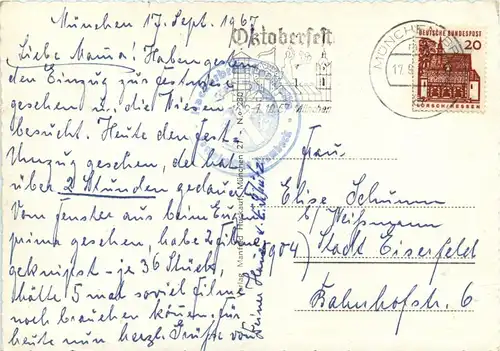 München 17. Sept. 1967
Liebe Mama! Haben gestern
den Einzug zur
gesehen u. die Wiesen
besucht. Heute den Fest-
Umzug gesehen, der hat
über 2 Stunden gedauert
Vom Fenster aus beim
prima gesehen, habe 2 Filme
geknipst - je 36 Stück,
hätte 5 mal soviel Filme
noch brauchen können. Für
heute nun herzl. Grüße von
Deiner
Oktoberfest
MÜNCHEN
DEUTSCHE BUNDESPOST
20
LORSCH/HESSEN
Frau
Elise Schumm
b/ Weißmann
(5904) Stadt Eiserfeld
Bahnhofstr. 6